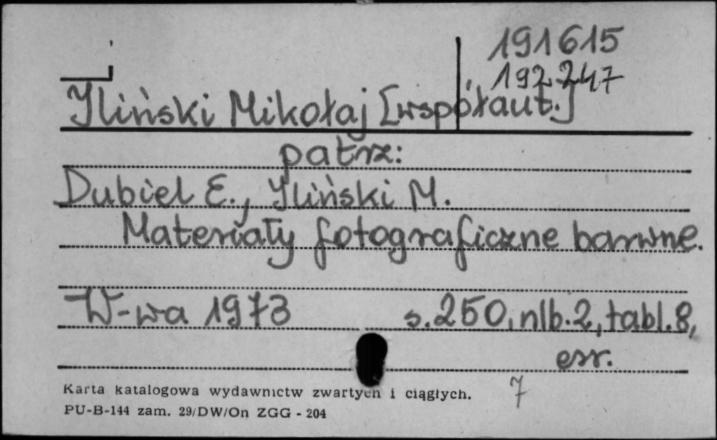 191615
192247
Iliński Mikołaj [współaut.]
patrz:
Dubiel E., Iliński M.
Materiały fotograficzne barwne.
W-wa 1973 s. 250, nlb. 2, tabl. 8,
err.
7
Karta katalogowa wydawnictw zwartych i ciągłych.
PU-B-144 zam. 29/DW/On ZGG - 204